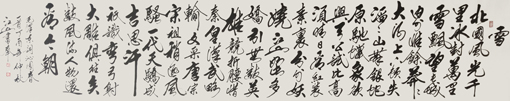 雪
北國風光千
里冰封萬里
雪飄望長城内
外惟餘莽莽
大河上下頓失
滔滔山舞銀蛇
原馳蠟象欲與
天公試比高
須晴日看紅裝
素裹分外妖
嬈江山如此多
嬌引無數英
雄競折腰惜
秦皇漢武略
輸文采唐宗
宋祖稍遜風
騷一代天驕成
吉思汗
只識彎弓射
大雕俱往矣
數風流人物還
看今朝